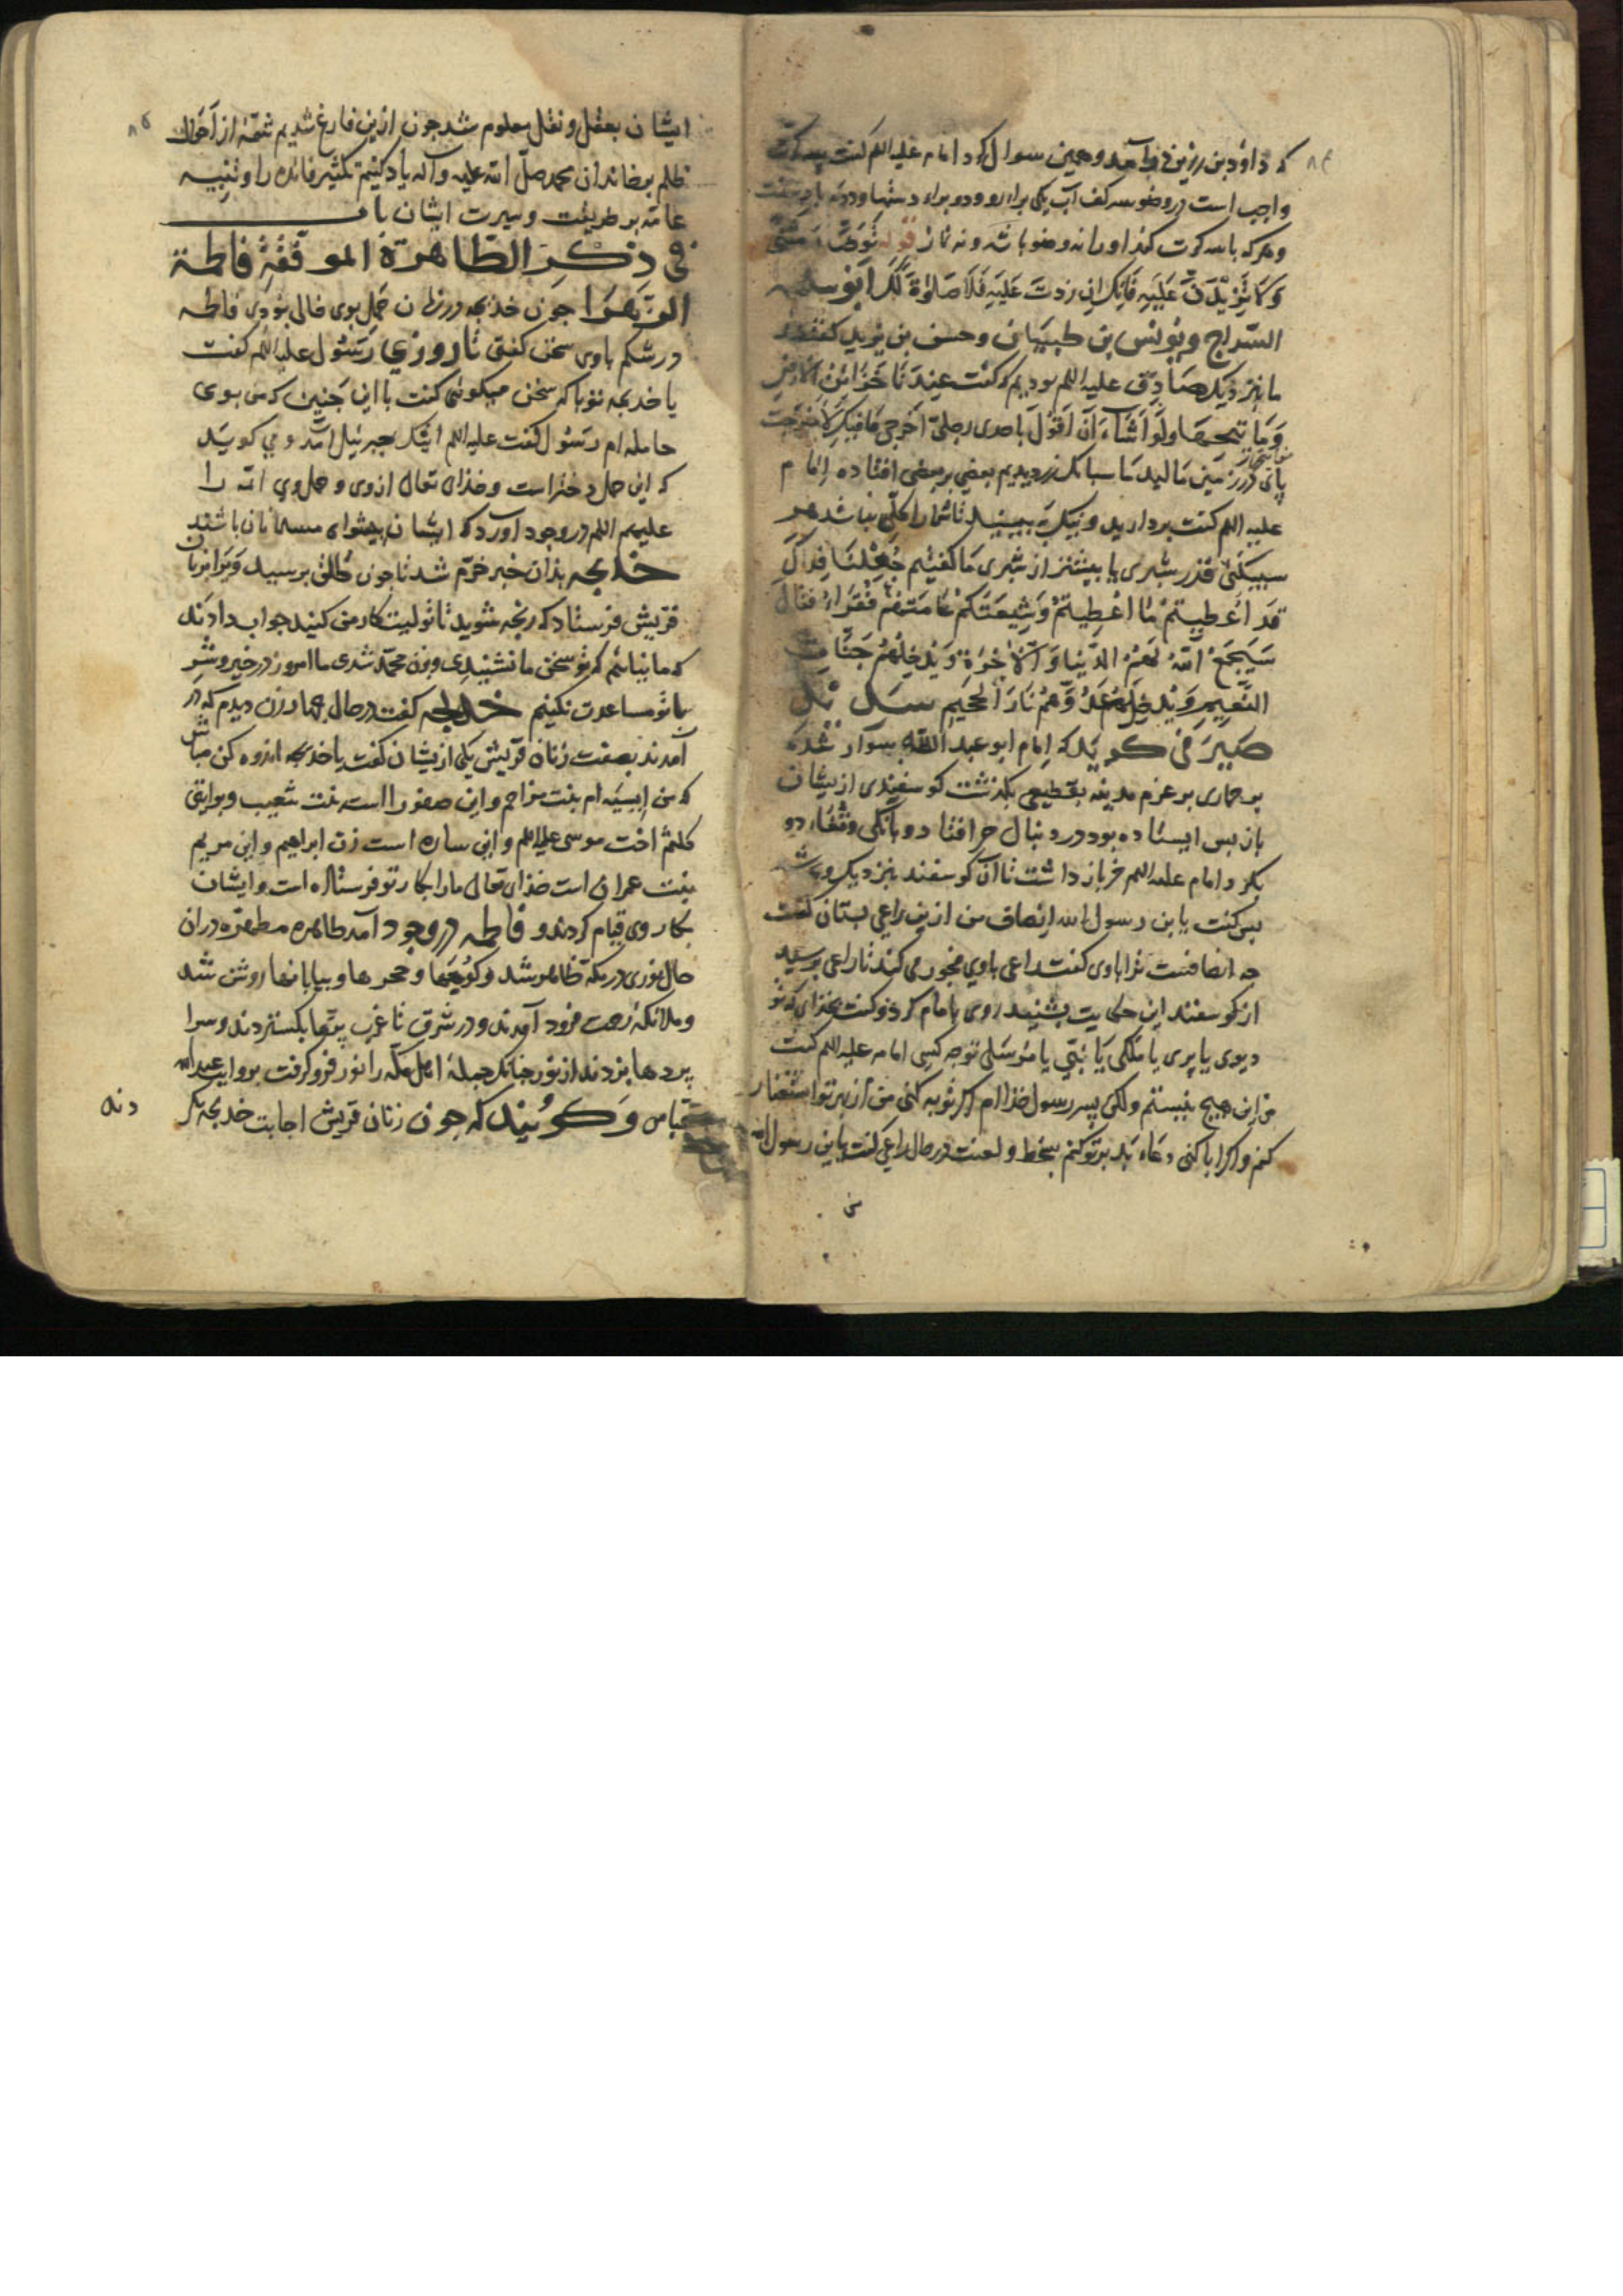 که داود بن رزین در آمد و همین سوال کرد امام علیه السلم گفت سه کرت
واجب است در وضو سه کف آب یکی براء رو و دو براء دستها و دونه یا
و هر که با سه کرت کند او را نه وضو باشد و نه نماز قوله تَوَضَّ مَثنی
وَلَا تَزِیْدَنَّ عَلَیهِ فَاِنَّک اِن زِدتَ عَلَیهِ فَلَا صَلٰوةَ لَکَ ابو سلمه
السّراج و یونس بن ظبیان و حسن بن یزید گفتند
ما بنزدیک صادق علیه السلم بودیم که گفت عِندَنا خَزَائِنُ الاَرضِ
وَمَفاتیحُهَا وَلَو اَشَاءُ اَن اَقُولَ باحدی رِجلیَّ اَخرِجِی مَا فِیکِ لَاَخرَجَت
پای در زمین مالید ما سبائک زر دیدیم بعضی بر بعضی افتاده امام
علیه السلم گفت بردارید و نیک ببینید تا شما را شکی نباشد هر
سبیکتی قدر شبری یا بیشتر از شبری ما گفتیم جُعِلنَا فِداکَ
قَد اُعطِیتُم مَا اُعطِیتُم وَشِیعَتُکُم عَامَّتُهُم فُقَرَاءُ فقال
سَیَجمَعُ اللّٰهُ لَهُمُ الدُّنیا وَالآخِرَةَ وَیُدخِلُهُم جَنَّاتِ
النَّعِیمِ وَیُدخِلُ عَدُوَّهُم نَارَ الجَحِیمِ سدیر
صیرفی کوید که امام ابو عبد الله سوار شده
بر حماری بر عزم مدینه بقطیعی بگذشت کوسفندی ازیشان
باز پس ایستاده بود در دنبال خر افتاد و بانکی و ثغاء
بکرد امام علیه السلم خر باز داشت تا آن کوسفند بنزدیک وی شد
پس گفت یا بن رسول الله انصاف من ازین راعی بستان گفت
چه انصافست ترا با وی گفت راعی با وی فجور می کند تا راعی برسید
از کوسفند این حکایت بشنید روی با امام کرد و گفت بخدای که تو
دیوی یا پری یا مَلَکی یا نَبیّ یا مُرسَلی تو چه کسی امام علیه السلم گفت
من ازین هیچ نیستم ولکن پسر رسول خدا ام اگر توبه کنی من از بهر تو استغفار
کنم و اگر ابا کنی دعاء بد بر تو کنم بسخط و لعنت در حال راعی گفت یا بن رسول الله
ایشان بعقل و نقل معلوم شد چون ازین فارغ شدیم شمّهٔ از احوال
ظلم بر خاندان محمد صلّی الله علیه وآله یاد کنیم تکثیر فائده را و تنبیه
عامّه بر طریقت و سیرت ایشان باب
فی ذکر الطّاهرة الموفّقة فاطمة
الزهرا چون خدیجه در زمان حمل بوی خالی بودی فاطمه
در شکم با وی سخن کفتی تا روزی رسول علیه السلم گفت
یا خدیجه تو با که سخن میکوئی گفت با این جنین که من بوی
حامله ام رسول گفت علیه السلم اینک جبرئیل آمد و می کوید
که این حمل دختر است و خدای تعالی از وی و حمل وی ائمه را
علیهم السلم در وجود آورد که ایشان پیشوای مسلمانان باشند
خدیجه بدان خبر خرّم شد تا چون طلق برسید و بزنان
قریش فرستاد که رنجه شوید تا تولیت کار من کنید جواب دادند
که ما نیائیم که تو سخن ما نشنیدی و زن محمد شدی ما امروز در خیر و شر
با تو مساعدت نکنیم خدیجه گفت در حال چهار زن دیدم که در
آمدند بصفت زنان قریش یکی ازیشان گفت یا خدیجه اندوه کن مباش
که من آسیه ام بنت مزاحم و این صفورا است بنت شعیب و بروایتی
کلثم اخت موسی علیه السلم و این ساره است زن ابراهیم و این مریم
بنت عمران است خدای تعالی ما را بکار تو فرستاده است و ایشان
بکار وی قیام کردند و فاطمه در وجود آمد طاهره مطهره در آن
حال نوری در مکّه ظاهر شد و کوهها و صحراها و بیابانها روشن شد
و ملائکه رحمت فرود آمدند و در شرق تا غرب پرها بکستردند و سرا
پردها بزدند از نور چنانک جملهٔ اهل مکّه را نور فرو گرفت بروایت عبدالله
عباس و کویند که چون زنان قریش اجابت خدیجه نکر
دند